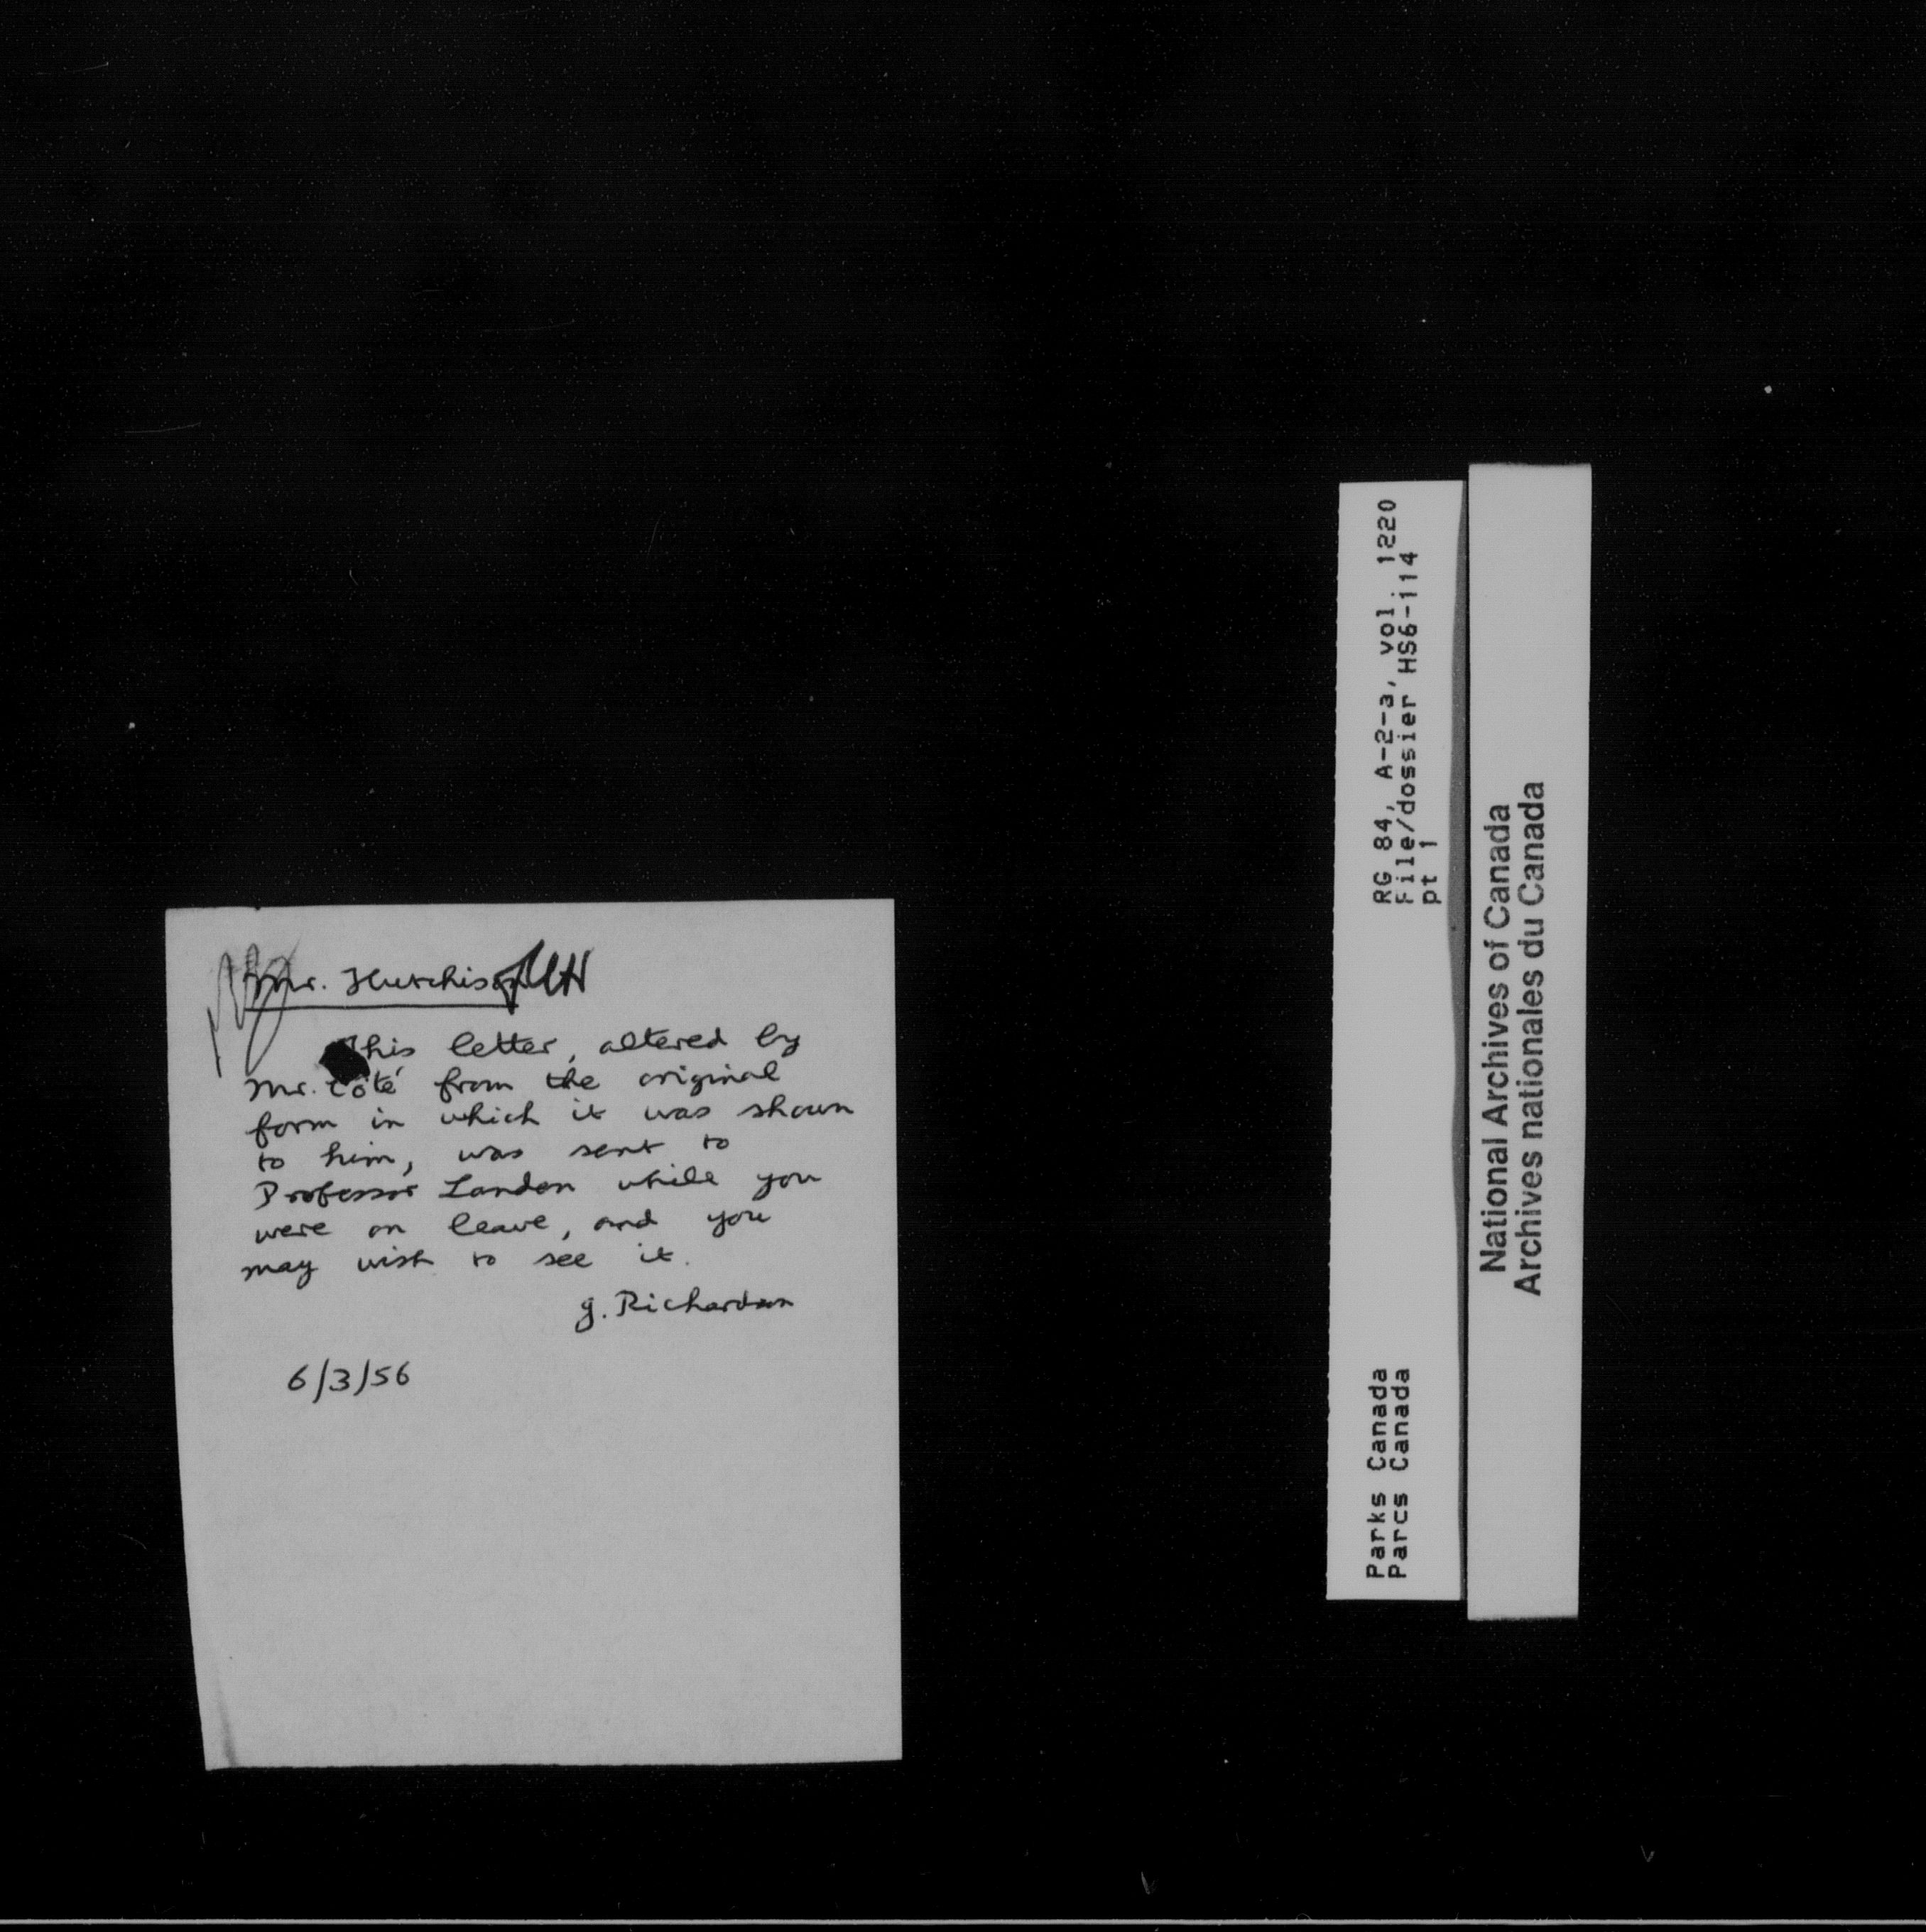 Mr. Hutchison
This letter, altered by
Mr. Côté from the original
form in which it was shown
to him, was sent to
Professor Landon while you
were on leave, and you
may wish to see it.
G. Richardson
6/3/56
RG 84, A-2-a, vol. 1220
File/dossier HS6-114
pt 1
Parks Canada
Parcs Canada
National Archives of Canada
Archives nationales du Canada